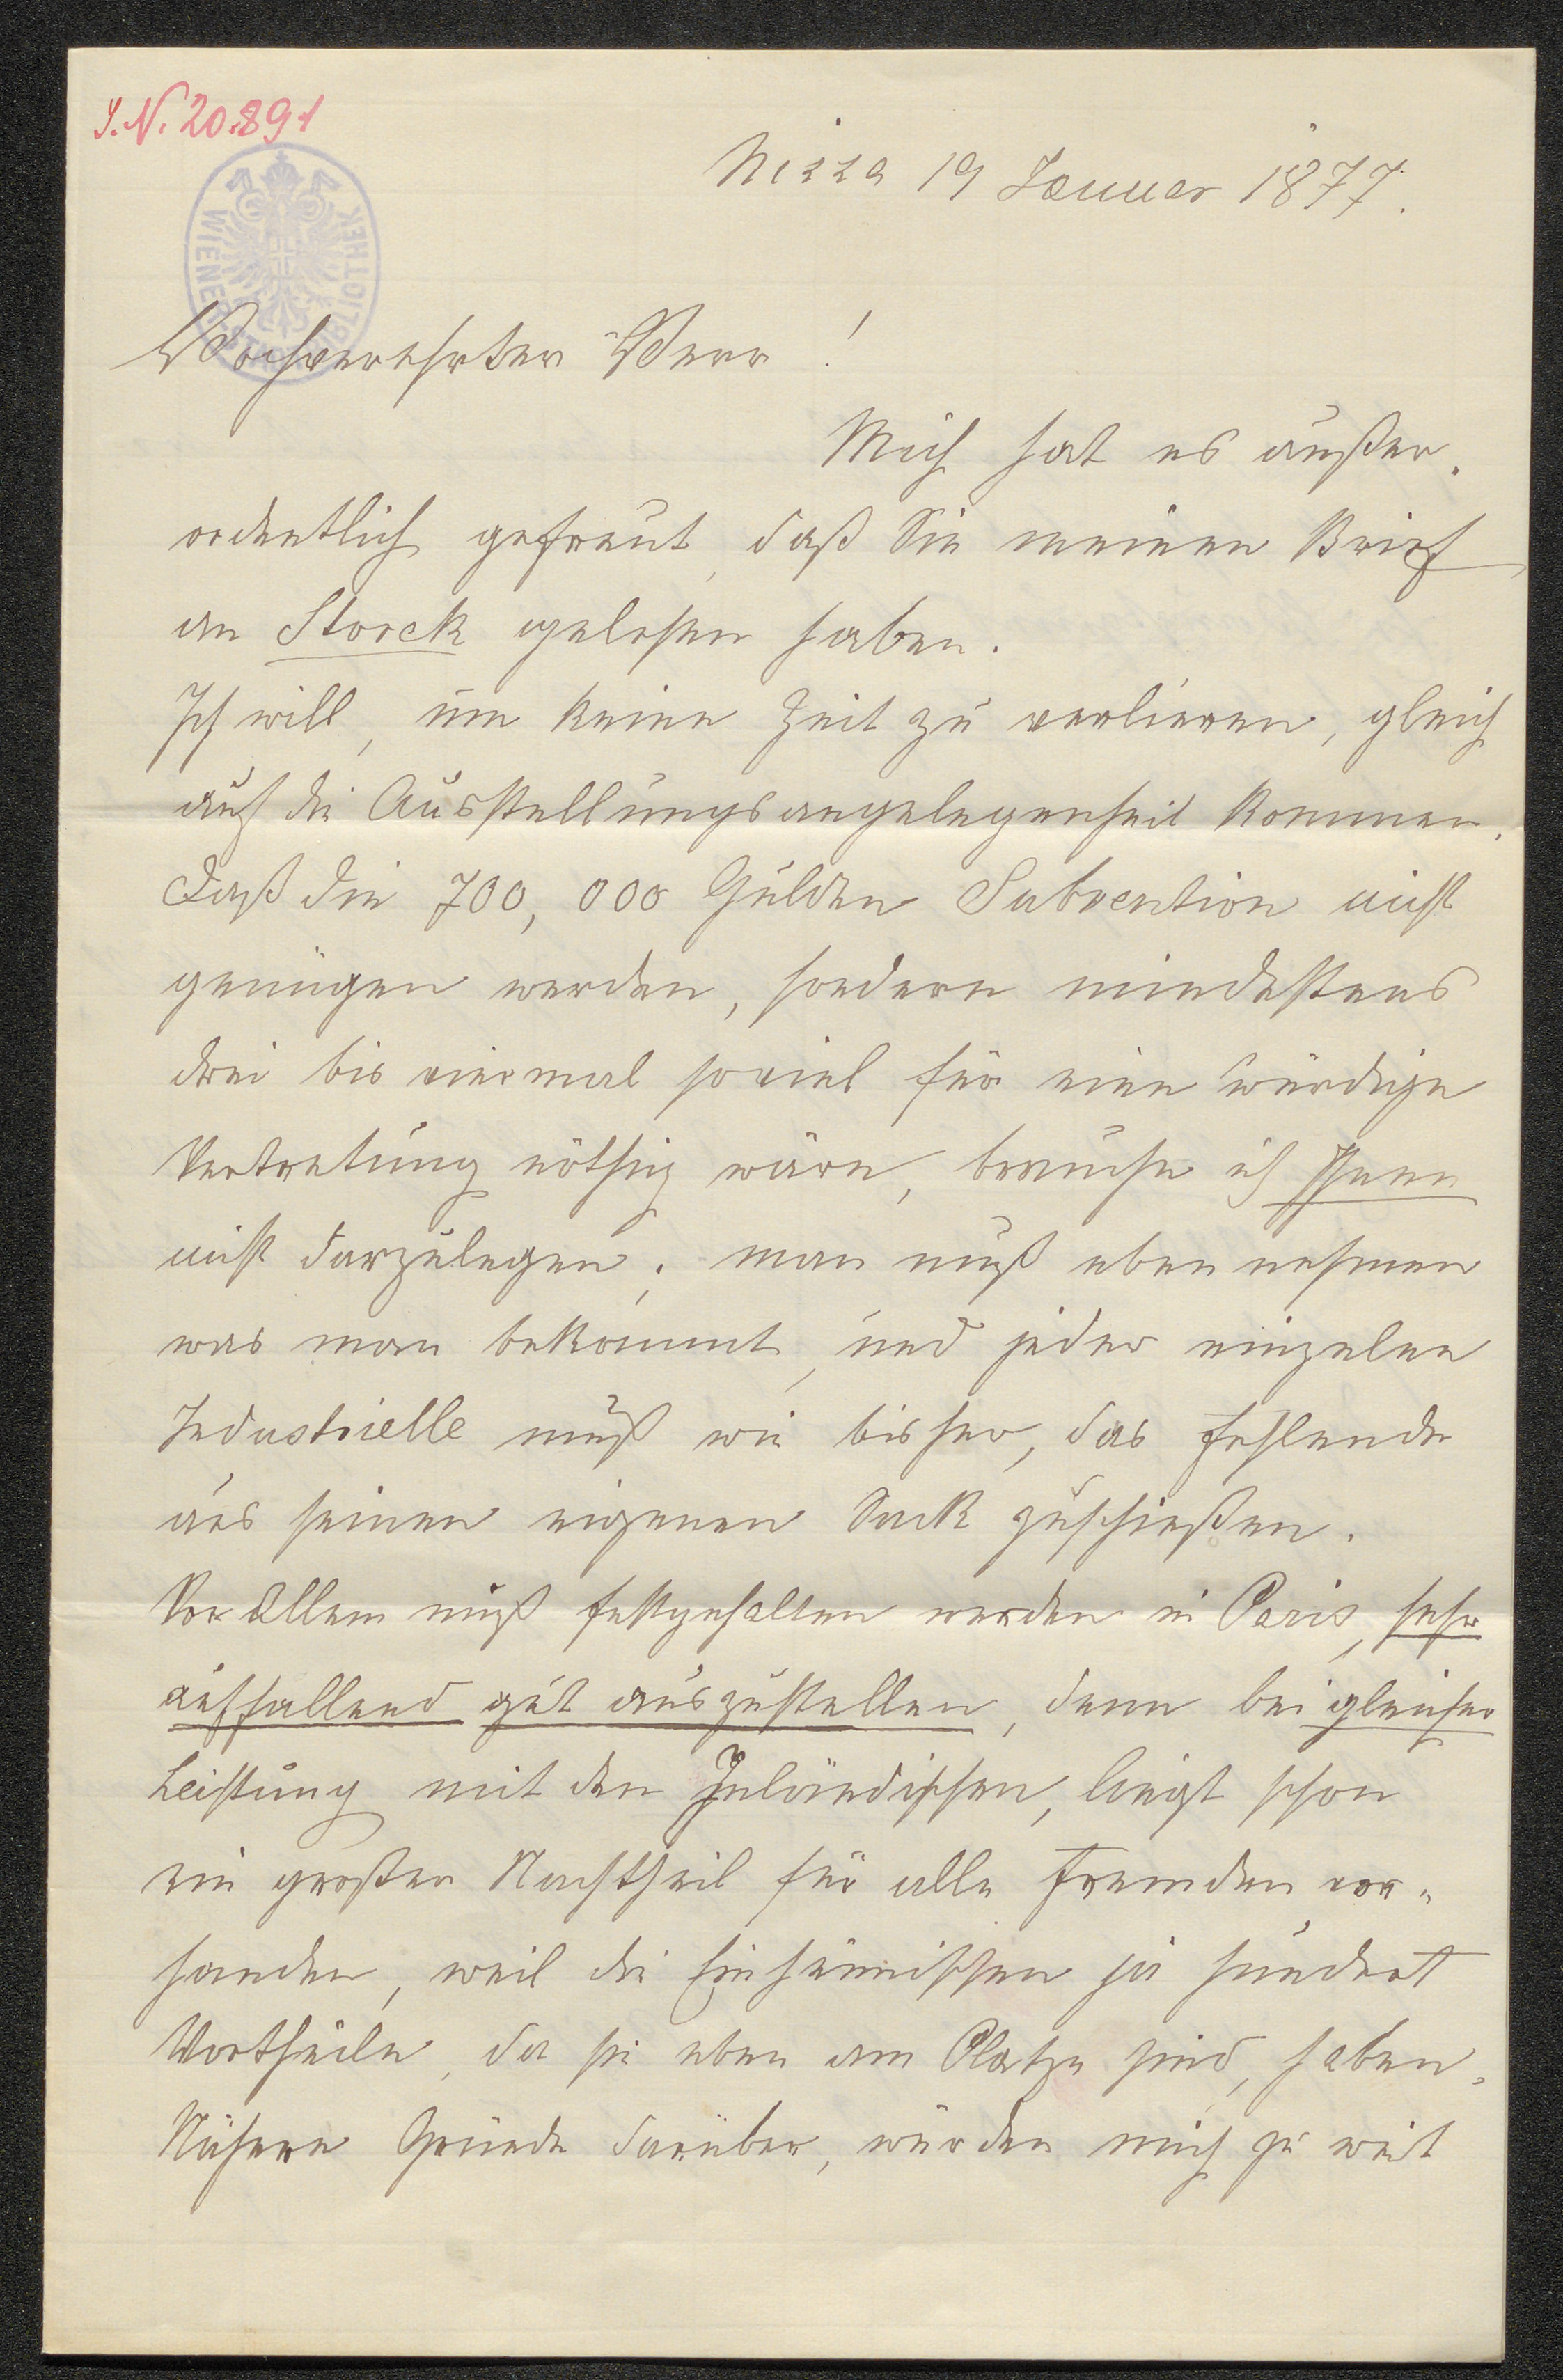 J.N. 20.891
Nizza 19 Januar 1877.
WIENER STADTBIBLIOTHEK
Hochverehrter Herr!
Mich hat es außer,
ordentlich gefreut, daß Sie meinen Brief
an Storck gelesen haben.
Ich will, um keine Zeit zu verlieren, gleich
auf die Ausstellungsangelegenheit kommen.
Daß die 700,000 Gulden Subvention nicht
genügen werden, sondern mindestens
drei bis viermal soviel für eine würdige
Vertretung nöthig wäre, brauche ich Ihnen
nicht darzulegen; man muß eben nehmen
was man bekommt, und jeder einzelne
Industrielle muß wie bisher, das Fehlende
aus seinen eigenen Sack zuschießen.
Vor Allem muß festgehalten werden in Paris, sehr
auffallend gut auszustellen, denn bei gleicher
Leistung mit den Inländischen, liegt schon
ein großer Nachtheil für alle Fremden vor„
handen, weil die Einheimischen ja hundert
Vortheile, da sie eben am Platze sind, haben.
Nähere Gründe darüber, würden mich zu weit